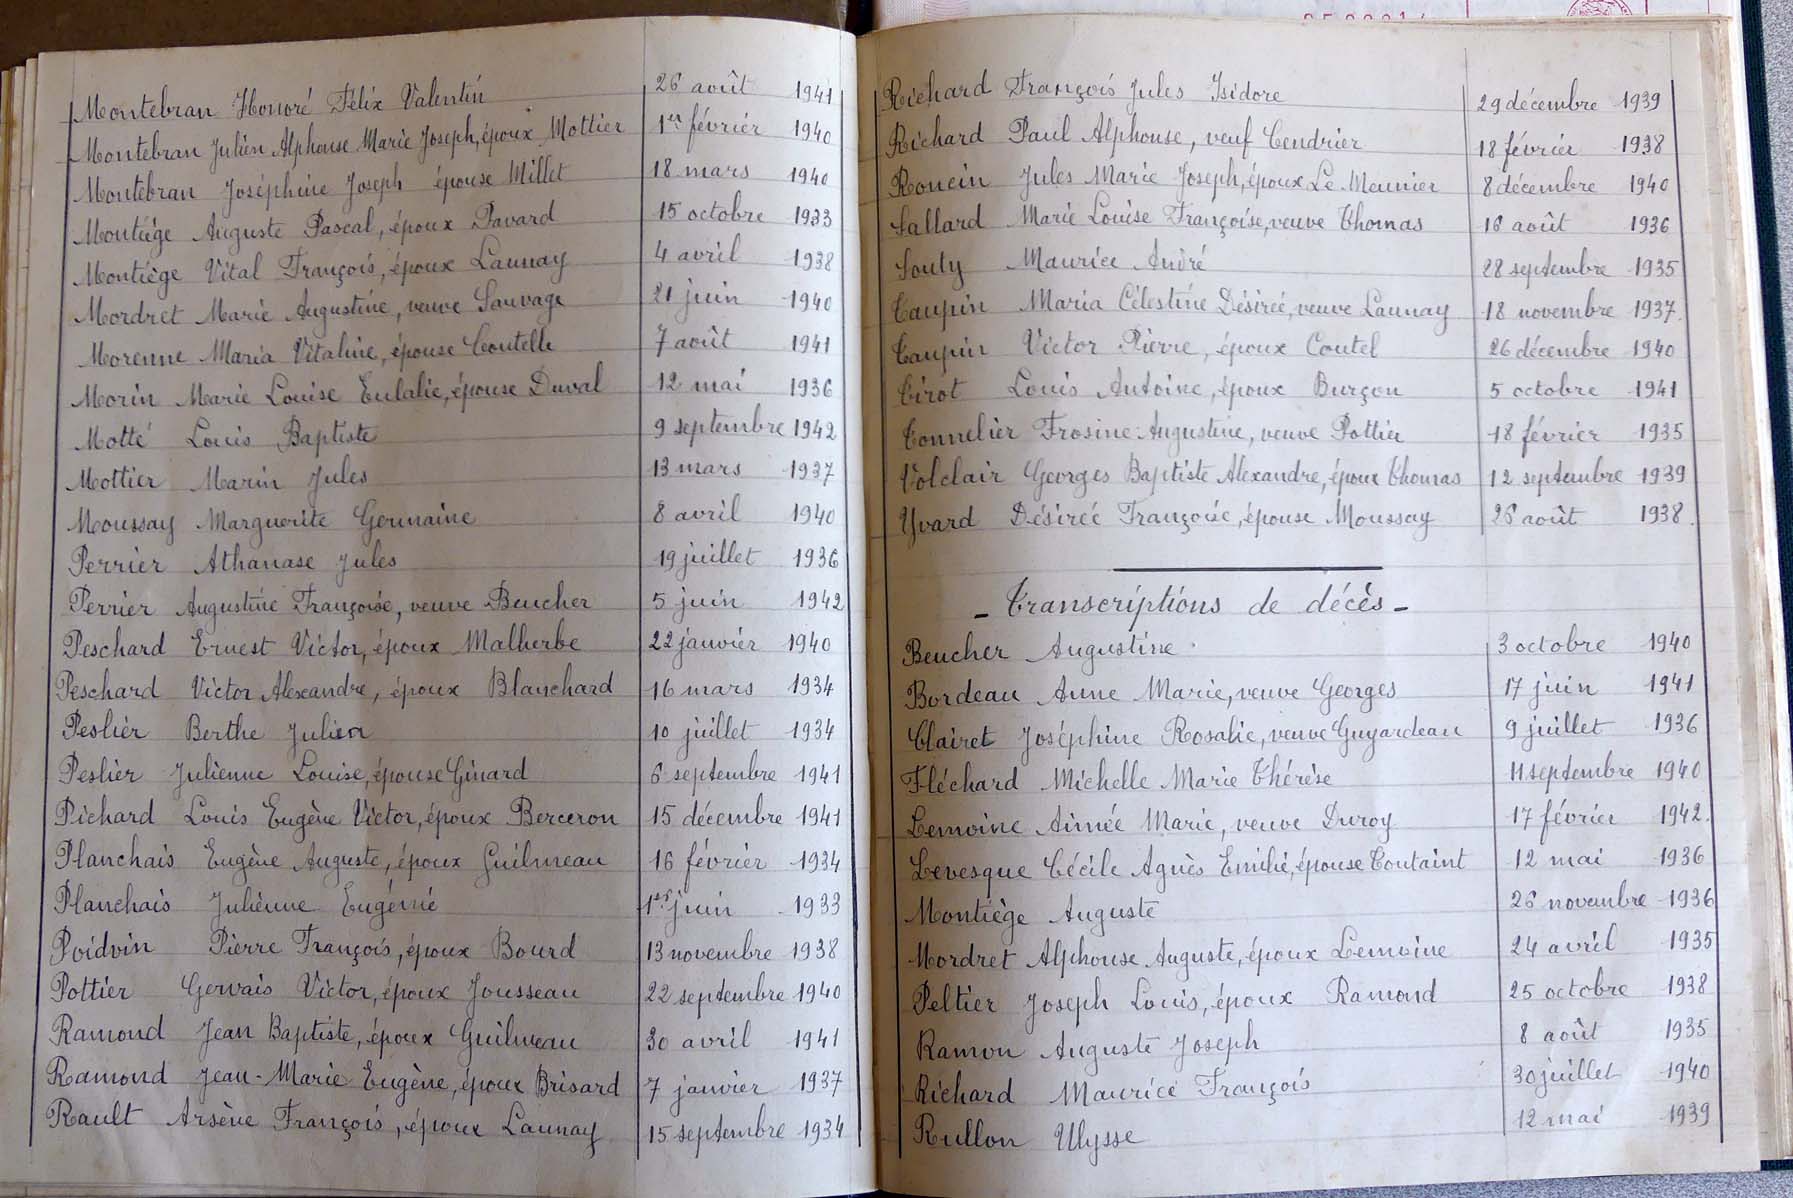 Montebran Honoré Félix Valentin 26 août 1941
Montebran Julien Alphonse Marie Joseph, époux Mottier 1er février 1940
Montebran Joséphine Joseph épouse Millet 18 mars 1940
Montiége Auguste Pascal, époux Pavard 15 octobre 1933
Montiége Vital François, époux Launay 4 avril 1938
Mordret Marie Augustine, veuve Sauvage 21 juin 1940
Morenne Maria Vitaline, épouse Coutelle 7 août 1941
Morin Marie Louise Eulalie, épouse Duval 12 mai 1936
Motté Louis Baptiste 9 septembre 1942
Mottier Marin Jules 13 mars 1937
Moussay Marguerite Germaine 8 avril 1940
Perrier Athanase Jules 19 juillet 1936
Perrier Augustine Françoise, veuve Beucher 5 juin 1942
Peschard Ernest Victor, époux Malherbe 22 janvier 1940
Peschard Victor Alexandre, époux Blanchard 16 mars 1934
Peslier Berthe Julien 10 juillet 1934
Peslier Julienne Louise, épouse Ginard 6 septembre 1941
Pichard Louis Eugène Victor, époux Berceron 15 décembre 1941
Planchais Eugène Auguste, époux Guilmeau 16 février 1934
Planchais Julienne Eugénie 1er juin 1933
Poidvin Pierre François, époux Bourd 13 novembre 1938
Pottier Gervais Victor, époux Jousseau 22 septembre 1940
Ramond Jean Baptiste, époux Guilmeau 30 avril 1941
Ramond Jean-Marie Eugène, époux Brisard 7 janvier 1937
Rault Arsène François, époux Launay 15 septembre 1934
Richard François Jules Isidore 29 décembre 1939
Richard Paul Alphonse, veuf Cendrier 18 février 1938
Roncin Jules Marie Joseph, époux Le Meunier 8 décembre 1940
Sallard Marie Louise Françoise, veuve Thomas 16 août 1936
Souty Maurice André 28 septembre 1935
Taupin Maria Célestine Désirée, veuve Launay 18 novembre 1937.
Taupin Victor Pierre, époux Coutel 26 décembre 1940
Tirot Louis Antoine, époux Burçon 5 octobre 1941
Tonnelier Frosine Augustine, veuve Pottier 18 février 1935
Volclair Georges Baptiste Alexandre, époux Thomas 12 septembre 1939
Yvard Désirée Françoise, épouse Moussay 26 août 1938.
- Transcriptions de décès -
Beucher Augustine 3 octobre 1940
Bordeau Anne Marie, veuve Georges 17 juin 1941
Clairet Joséphine Rosalie, veuve Guyardeau 9 juillet 1936
Fléchard Michelle Marie Thérèse 11 septembre 1940
Lemoine Aimée Marie, veuve Duroy 17 février 1942.
Levesque Cécile Agnès Emilie, épouse Toutaint 12 mai 1936
Montiège Auguste 26 novembre 1936
Mordret Alphonse Auguste, époux Lemoine 24 avril 1935
Peltier Joseph Louis, époux Ramond 25 octobre 1938
Ramon Auguste Joseph 8 août 1935
Richard Maurice François 30 juillet 1940
Rullon Ulysse 12 mai 1939